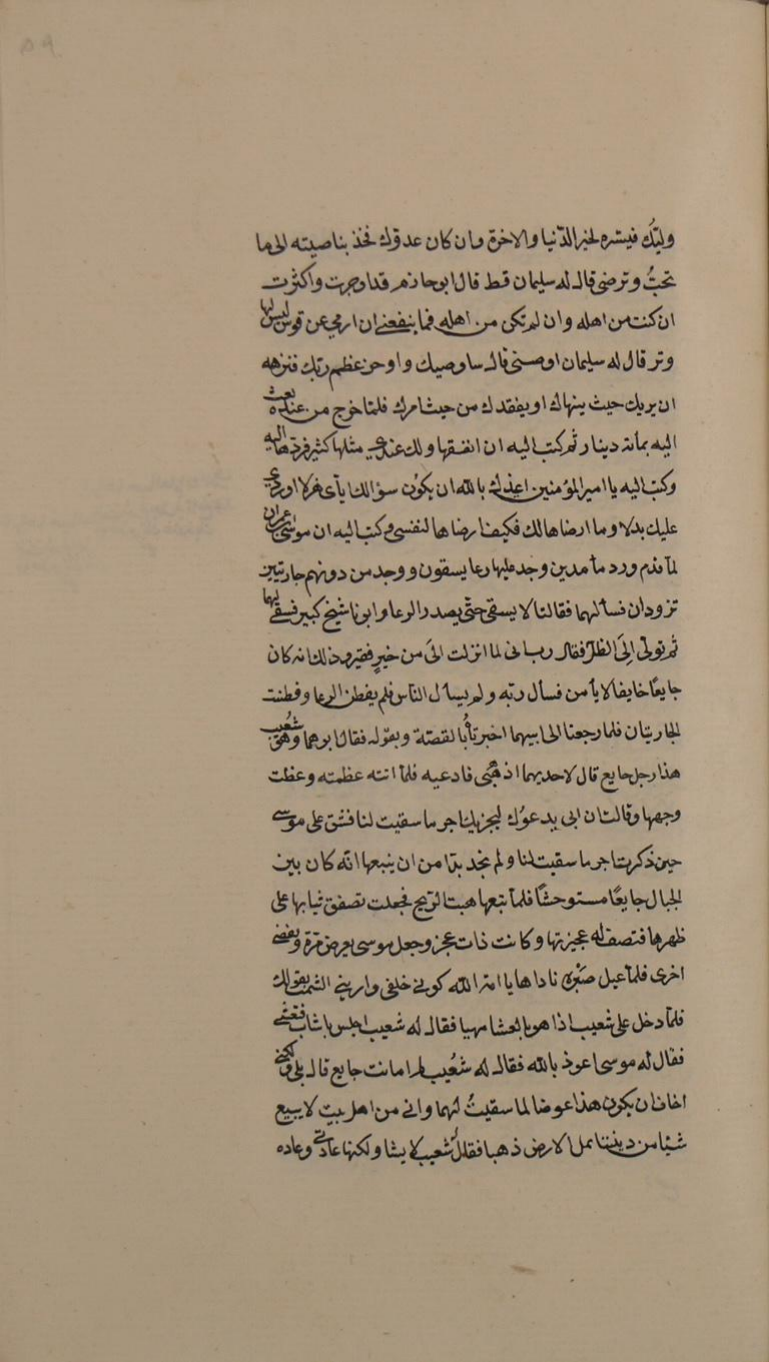 وليّك فيسّره لخير الدّنيا والاخرة وان كان عدوّك فخذ بناصيته الى ما
تحبّ وترضى قال له سليمان قط قال ابو حازم قد اوجزت واكثرت
ان كنت من اهله وان لم تكن من اهله فما ينفعني ان ارمي عن قوس ليس لها
وتر قال له سليمان اوصنى قال ساوصيك واوجز عظم ربّك فنزهه
ان يريك حيث ينهاك او يفقدك من حيث امرك فلمّا خرج من عنده بعث
اليه بمأته دينار ثم كتب اليه ان انفقها ولك عندي مثلها كثير فردّها اليه
وكتب اليه يا امير المؤمنين اعيذك بالله ان يكون سؤالك ايّاى هزلا اوردّي
عليك بدلا وما ارضاها لك فكيف ارضاها لنفسى وكتب اليه ان موسى بن عمران
لمّا قدم ورد مأ مدين وجد عليها رعا يسقون ووجد من دونهم جاريتين
تزودان فسألهما فقالتا لا يسقى حتّى يصدر الرعا وابونا شيخ كبير فسقى لهما
ثم تولّى الى الظلّ فقال رب انى لما انزلت الىّ من خير فقير وذلك انه كان
جايعًا خايفا لا يأمن فسأل ربّه ولم يسأل النّاس فلم يفطن الرعا وفطنت
الجاريتان فلما رجعتا الى ابيهما اخبرتاه بالقصّة وبقوله فقال ابوهما وهو شعيب
هذا رجل جايع قال لاحديهما اذهبى فادعيه فلمّا اتته عظمته وغطت
وجهها وقالت ان ابى يدعوك ليجزيك اجر ما سقيت لنا فشق على موسى
حين ذكرت اجر ما سقيت لنا ولم نجد بدّا من ان يتبعها انّه كان بين
الجبال جايعًا مستوحشًا فلمّا تبعها هبت الرّيح فجعلت تصفق ثيابها على
ظهرها فتصف له عجيزتها وكانت ذات عجز وجعل موسى يعرض مرّة ويغضى
اخرى فلمّا عيل صبره ناداها يا امة الله كونى خلفى واريني السّمت بقولك
فلمّا دخل على شعيب اذا هو بالعشا مهيا فقال له شعيب اجلس يا شاب فتعشى
فقال له موسى اعوذ بالله فقال له شعيب لم اما انت جايع قال بلى ولكني
اخاف ان يكون هذا عوضا لما سقيت لهما وانى من اهل بيت لا يبيع
شيًا من ديننا بمل الارض ذهبا فقال شعيب لا يشا ولكنها عادتي وعاده